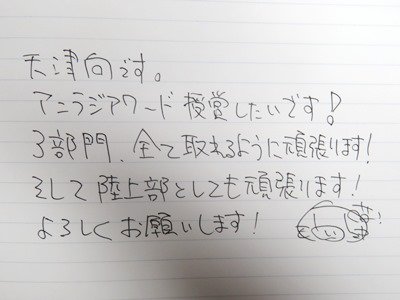 天津向です。
アニラジアワード授賞したいです!
3部門、全て取れるように頑張ります!
そして陸上部としても頑張ります!
よろしくお願いします!